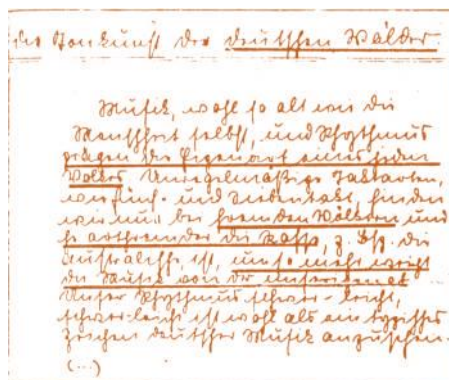 die Tonkunst der deutschen Wälder.
Musik, wohl so alt wie die
Menschheit selbst, und Rhythmus
prägen die Eigenart eines jeden
Volkes. Unregelmäßige Taktarten,
wie fünf- und Siebentakt, finden
wir nur bei fremden Völkern und
je artfremder die Rasse, z. Bsp. die
australische ist, umso mehr weicht
die Musik von der unserigen ab
Unser Rhythmus schwer-leicht,
schwer-leicht ist wohl als ein typisches
Zeichen deutscher Musik anzusehen.
(...)